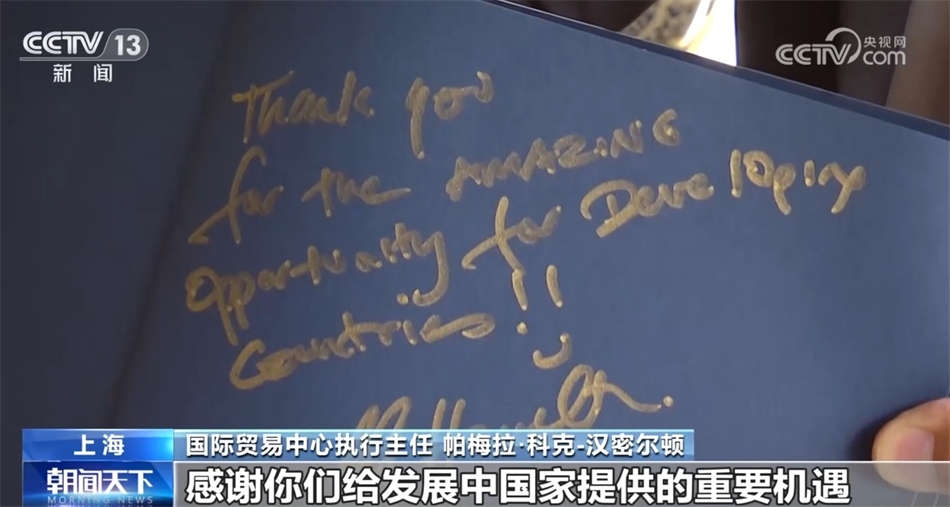 CCTV 13
新闻
CCTV 央视网
com
Thank you
for the AMAZING
Opportunity for Developing
Countries!!
上海
国际贸易中心执行主任 帕梅拉·科克-汉密尔顿
朝闻天下
MORNING NEWS
感谢你们给发展中国家提供的重要机遇